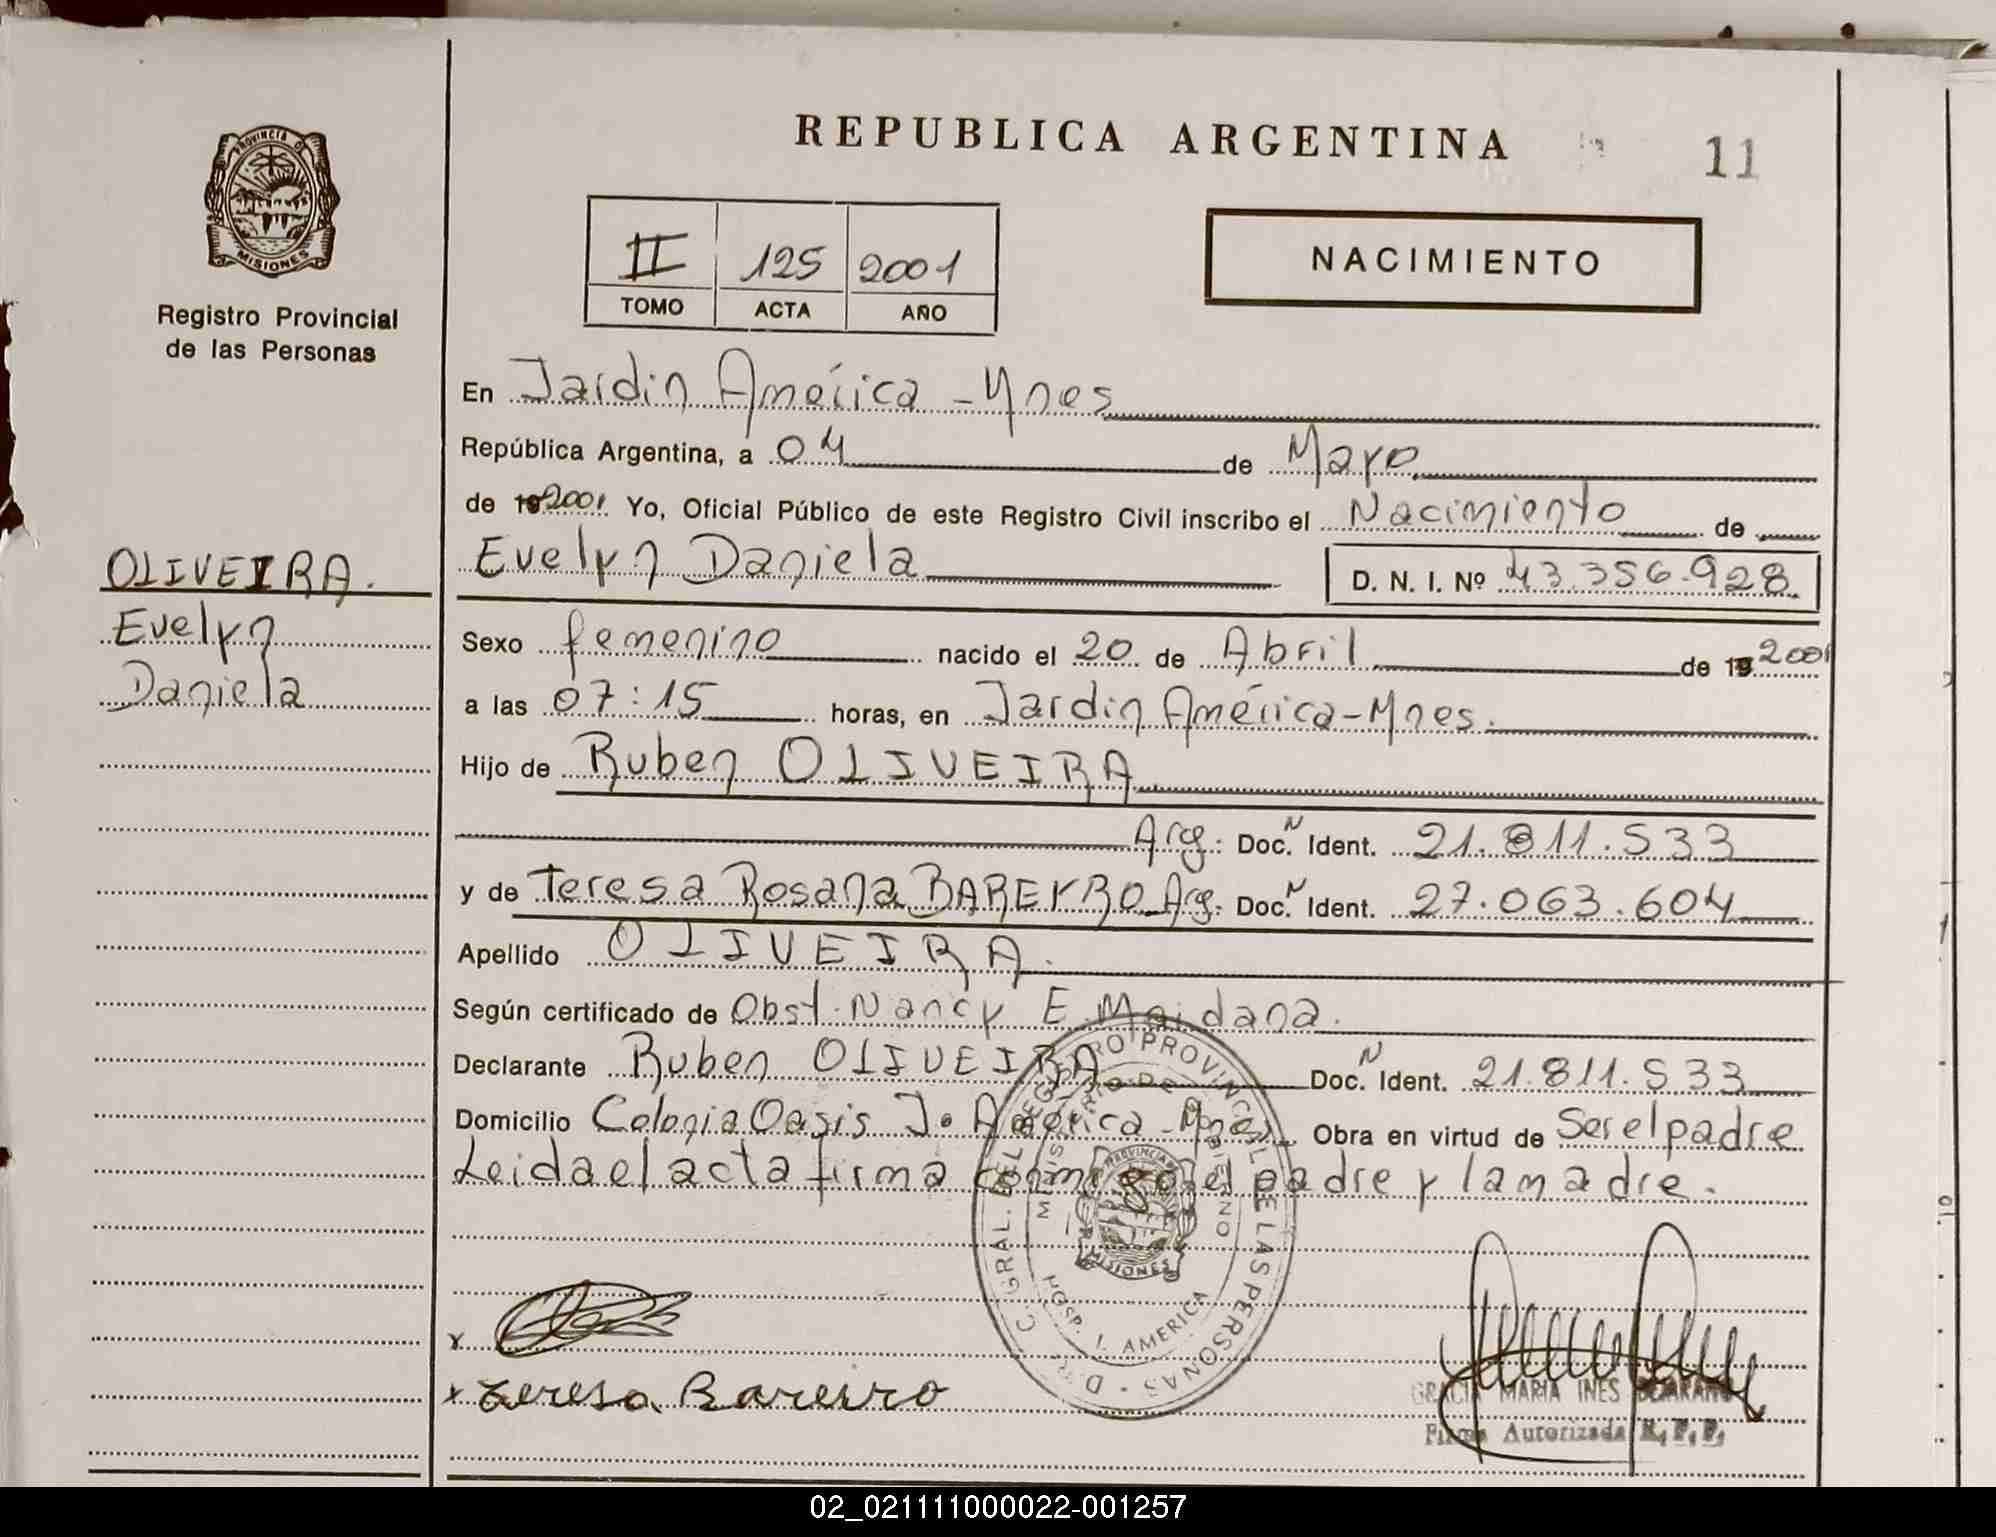 REPUBLICA ARGENTINA
11
PROVINCIA DE
MISIONES
Registro Provincial
de las Personas
II 125 2001
TOMO ACTA AÑO
NACIMIENTO
En Jardin América - Mnes
República Argentina, a 04 de Mayo
de 19 2001 Yo, Oficial Público de este Registro Civil inscribo el Nacimiento de
Evelyn Daniela D. N. I. Nº 43.356.928
OLIVEIRA.
Evelyn
Daniela
Sexo femenino nacido el 20 de Abril de 19 2001
a las 07:15 horas, en Jardin América - Mnes.
Hijo de Ruben OLIVEIRA
Arg. Doc. N Ident. 21.811.533
y de Teresa Rosana BAREYRO Arg. Doc. N Ident. 27.063.604
Apellido OLIVEIRA.
Según certificado de Obst. Nancy E. Maidana.
Declarante Ruben OLIVEIRA Doc. N Ident. 21.811.533
Domicilio Colonia Oasis J. América - Mnes. Obra en virtud de Ser el padre
Leida el acta firma conmigo el padre y la madre.
REGISTRO PROVINCIAL DE LAS PERSONAS
MINISTERIO DE GOBIERNO
PROVINCIA
MISIONES
HOSP. J. AMERICA
x
x Teresa Bareiro
GRACIA MARIA INES
Firma Autorizada R. P. P.
02_021111000022-001257